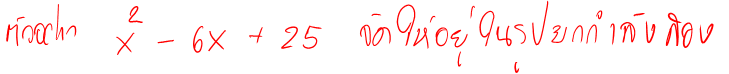 ตัวอย่าง x² - 6x + 25 จัดให้อยู่ในรูปยกกำลังสอง